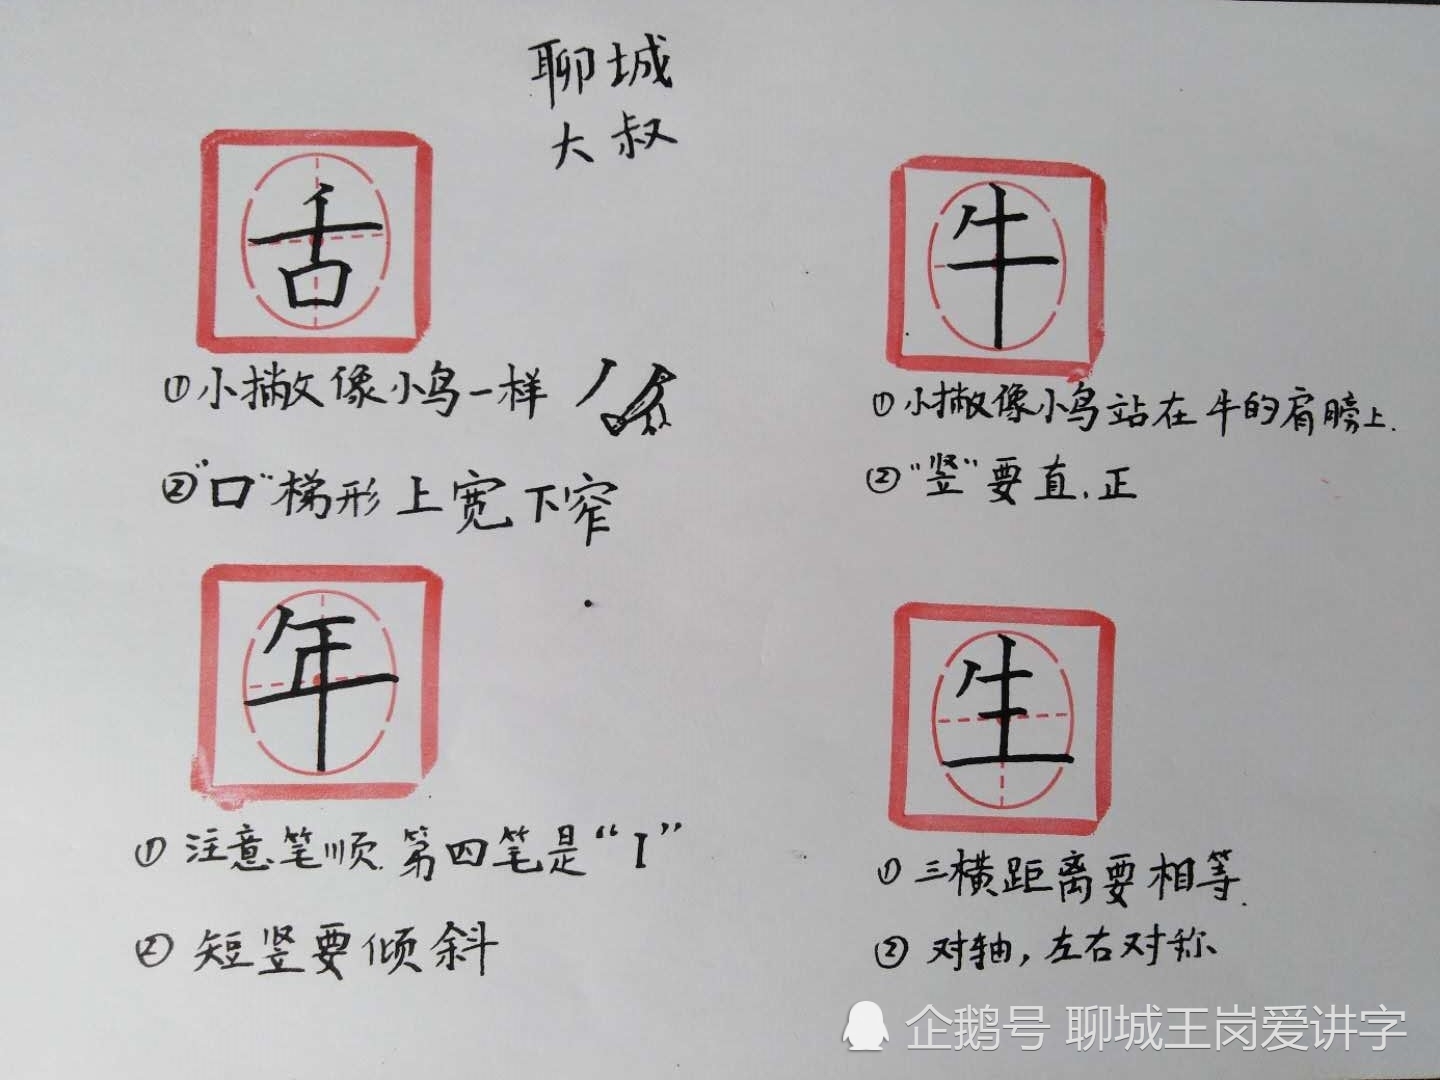 聊城
大叔
舌
①小撇像小鸟一样
②"口"梯形上宽下窄
牛
①小撇像小鸟站在牛的肩膀上.
②"竖"要直.正
年
①注意笔顺.第四笔是"丨"
②短竖要倾斜
生
①三横距离要相等.
②对轴,左右对称
企鹅号 聊城王岗爱讲字